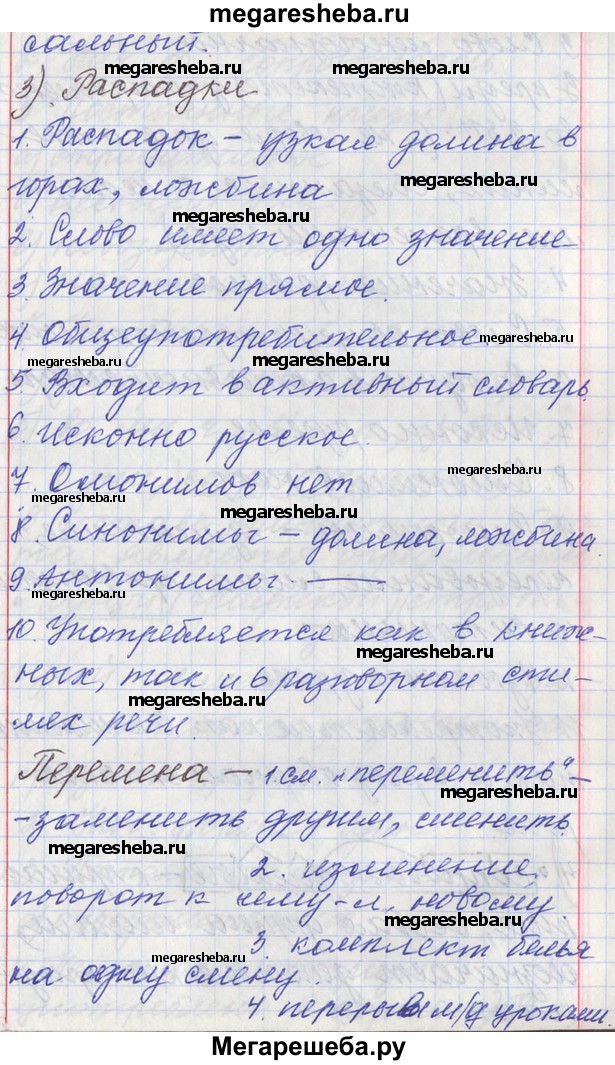 megaresheba.ru
сальный.
megaresheba.ru megaresheba.ru
3). Распадки
1. Распадок – узкая долина в
megaresheba.ru
горах, ложбина
megaresheba.ru
2. Слово имеет одно значение
3. Значение прямое.
4. Общеупотребительное
megaresheba.ru megaresheba.ru megaresheba.ru
5. Входит в активный словарь.
6. Исконно русское.
megaresheba.ru
7. Омонимов нет
megaresheba.ru megaresheba.ru
8. Синонимы – долина, ложбина.
9. Антонимы ———
megaresheba.ru
10. Употребляется как в книж-
megaresheba.ru
ных, так и в разговорном сти-
megaresheba.ru
лях речи.
Перемена – 1 см. "переменить" –
megaresheba.ru
- заменить другим, сменить.
megaresheba.ru
2. изменение,
поворот к чему-л. новому.
megaresheba.ru
3. комплект белья
megaresheba.ru
на одну смену.
4. перерыв м/д уроками.
megaresheba.ru
Мегарешеба.ру